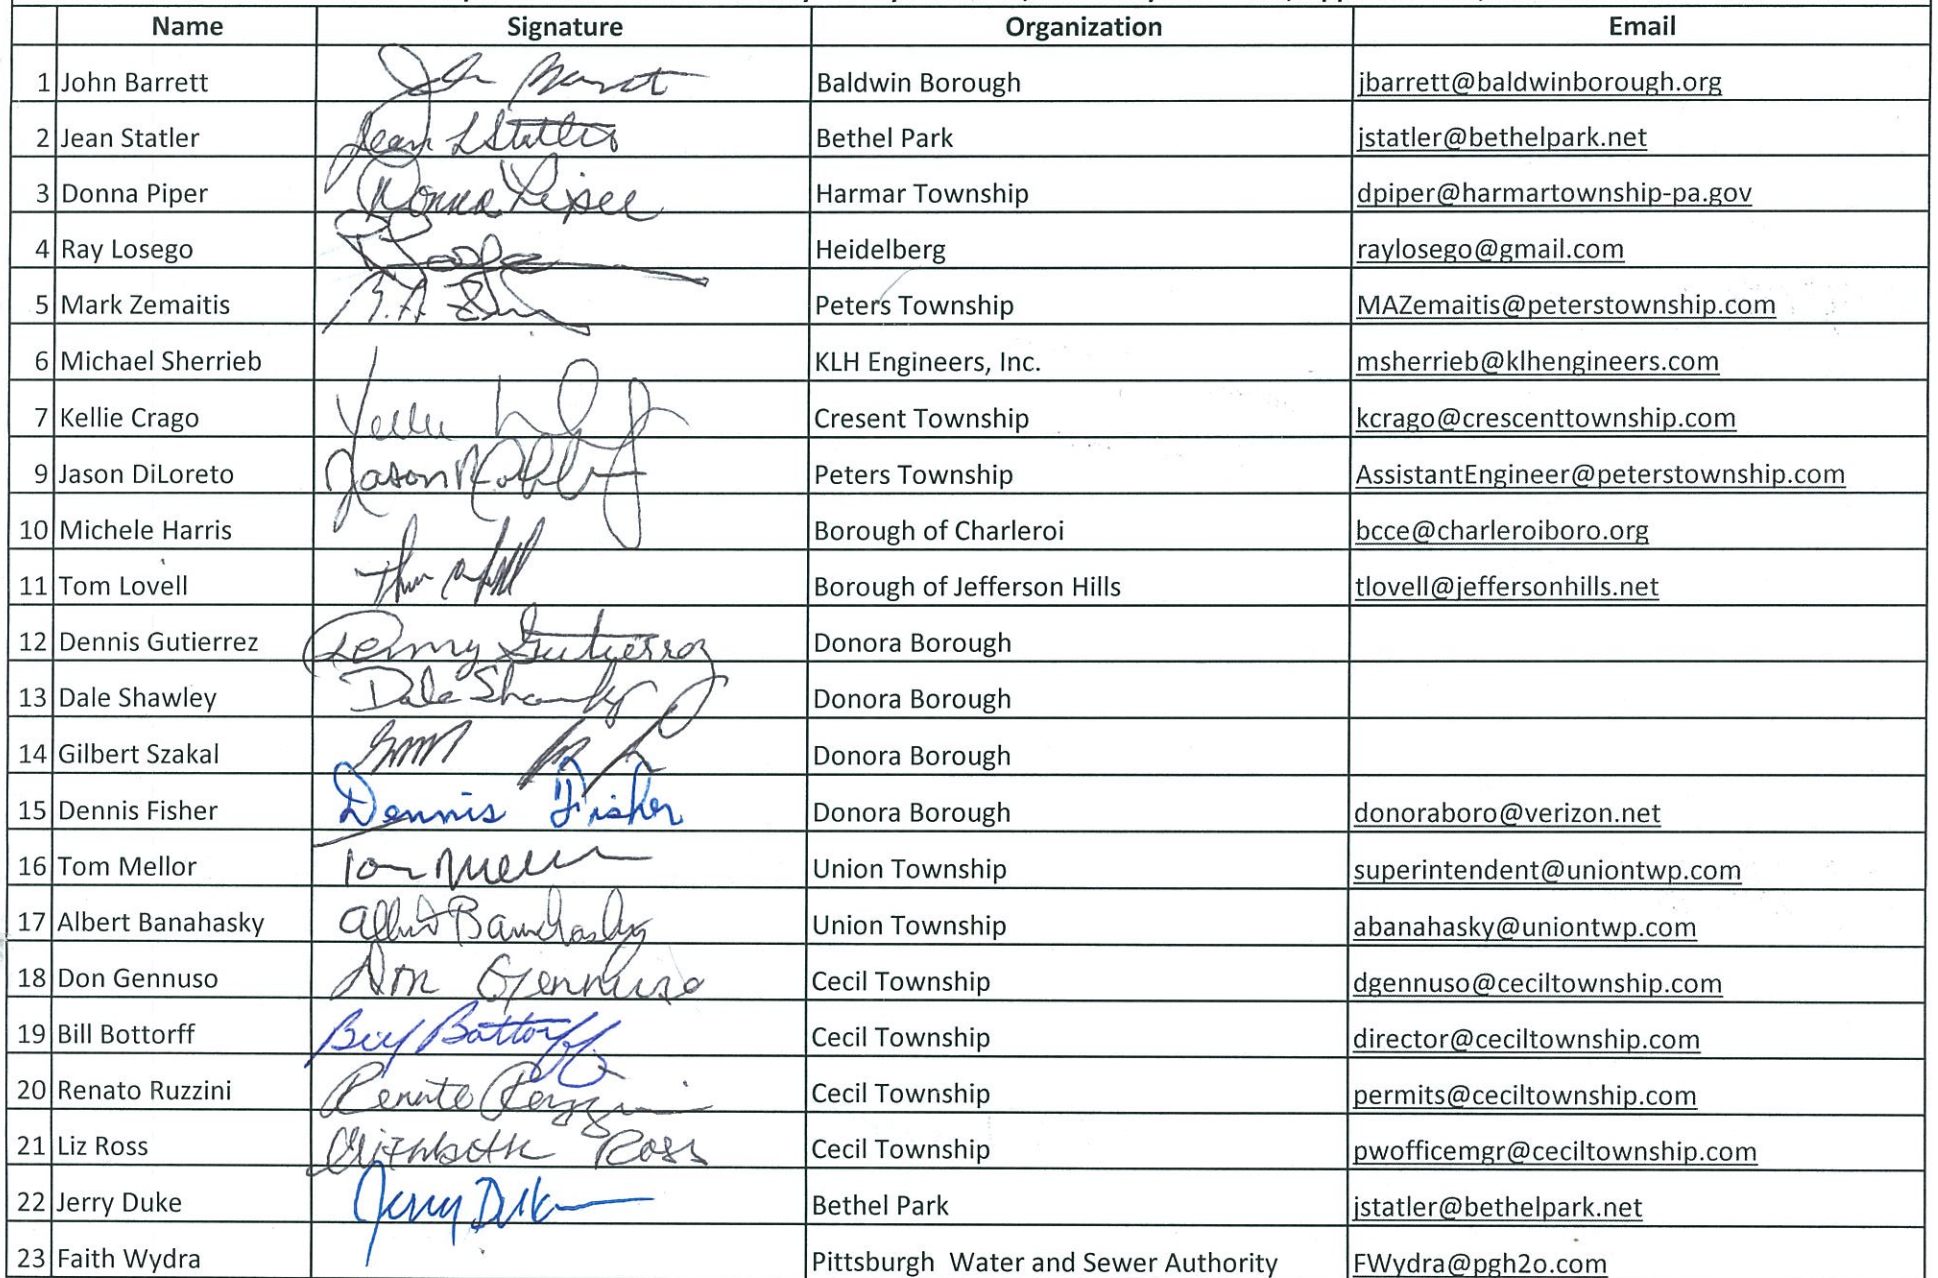 Name Signature Organization Email
1 John Barrett Baldwin Borough jbarrett@baldwinborough.org
2 Jean Statler Jean L Statler Bethel Park jstatler@bethelpark.net
3 Donna Piper Donna Piper Harmar Township dpiper@harmartownship-pa.gov
4 Ray Losego Heidelberg raylosego@gmail.com
5 Mark Zemaitis Peters Township MAZemaitis@peterstownship.com
6 Michael Sherrieb KLH Engineers, Inc. msherrieb@klhengineers.com
7 Kellie Crago Cresent Township kcrago@crescenttownship.com
9 Jason DiLoreto Jason Peters Township AssistantEngineer@peterstownship.com
10 Michele Harris Borough of Charleroi bcce@charleroiboro.org
11 Tom Lovell Borough of Jefferson Hills tlovell@jeffersonhills.net
12 Dennis Gutierrez Denny Gutierrez Donora Borough
13 Dale Shawley Dale Shawley Donora Borough
14 Gilbert Szakal Donora Borough
15 Dennis Fisher Dennis Fisher Donora Borough donoraboro@verizon.net
16 Tom Mellor Tom Mellor Union Township superintendent@uniontwp.com
17 Albert Banahasky Albert Banahasky Union Township abanahasky@uniontwp.com
18 Don Gennuso Don Gennuso Cecil Township dgennuso@ceciltownship.com
19 Bill Bottorff Bill Bottorff Cecil Township director@ceciltownship.com
20 Renato Ruzzini Renato Ruzzini Cecil Township permits@ceciltownship.com
21 Liz Ross Elizabeth Ross Cecil Township pwofficemgr@ceciltownship.com
22 Jerry Duke Jerry Duke Bethel Park jstatler@bethelpark.net
23 Faith Wydra Pittsburgh Water and Sewer Authority FWydra@pgh2o.com